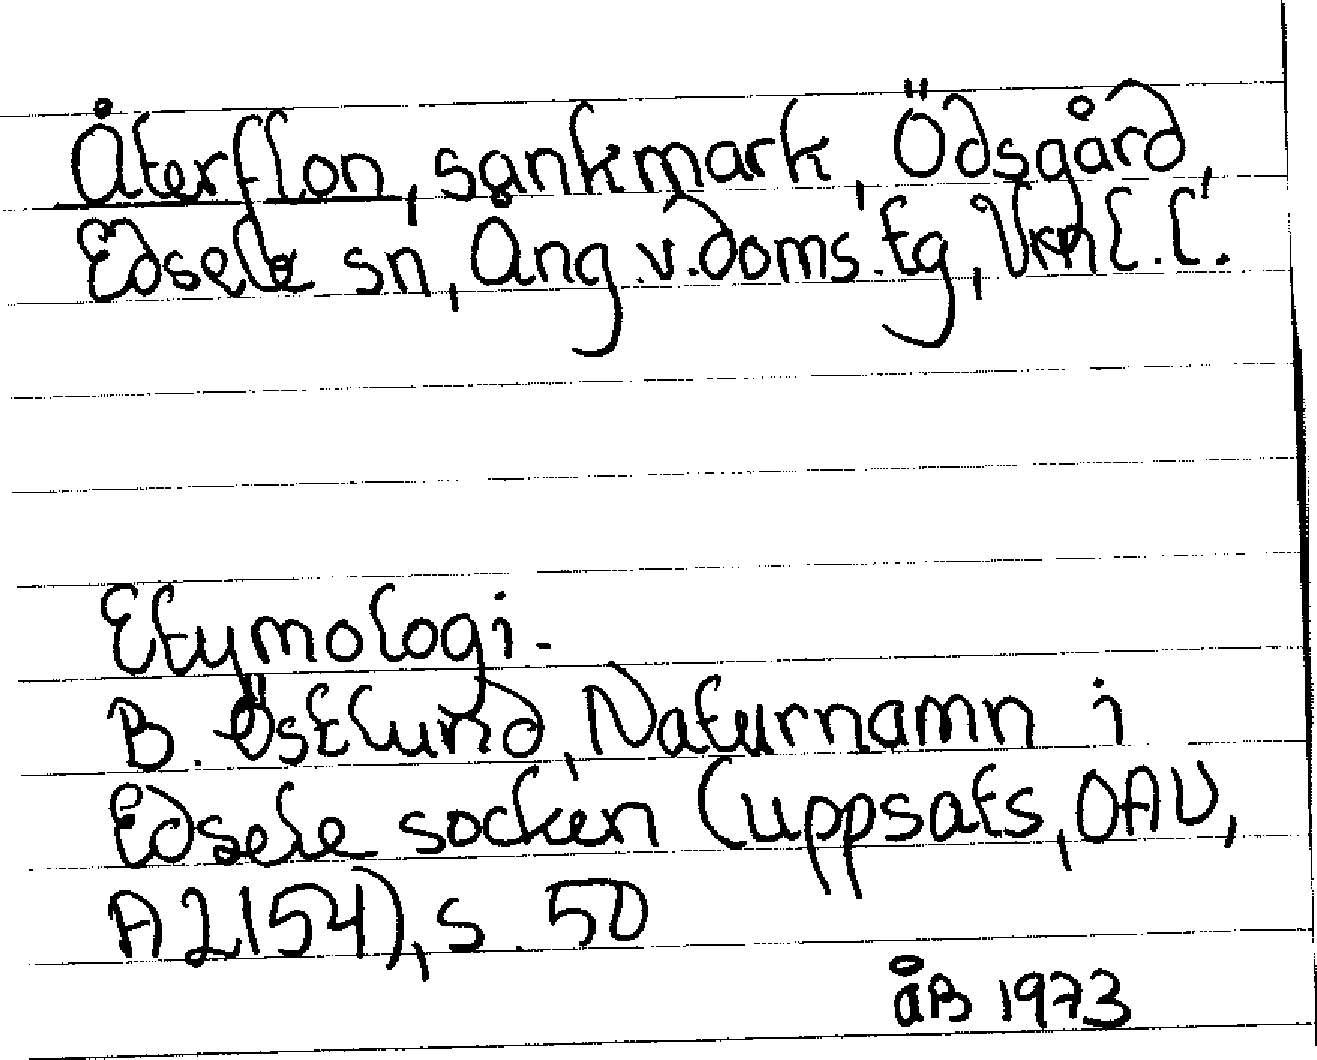 Återflon, sankmark, Ödsgård,
Edsele sn, Ång.v.doms.tg,
Etymologi.
B. Östlund, Naturnamn i
Edsele socken (uppsats, OAU,
A 2154), s. 50
åB 1973